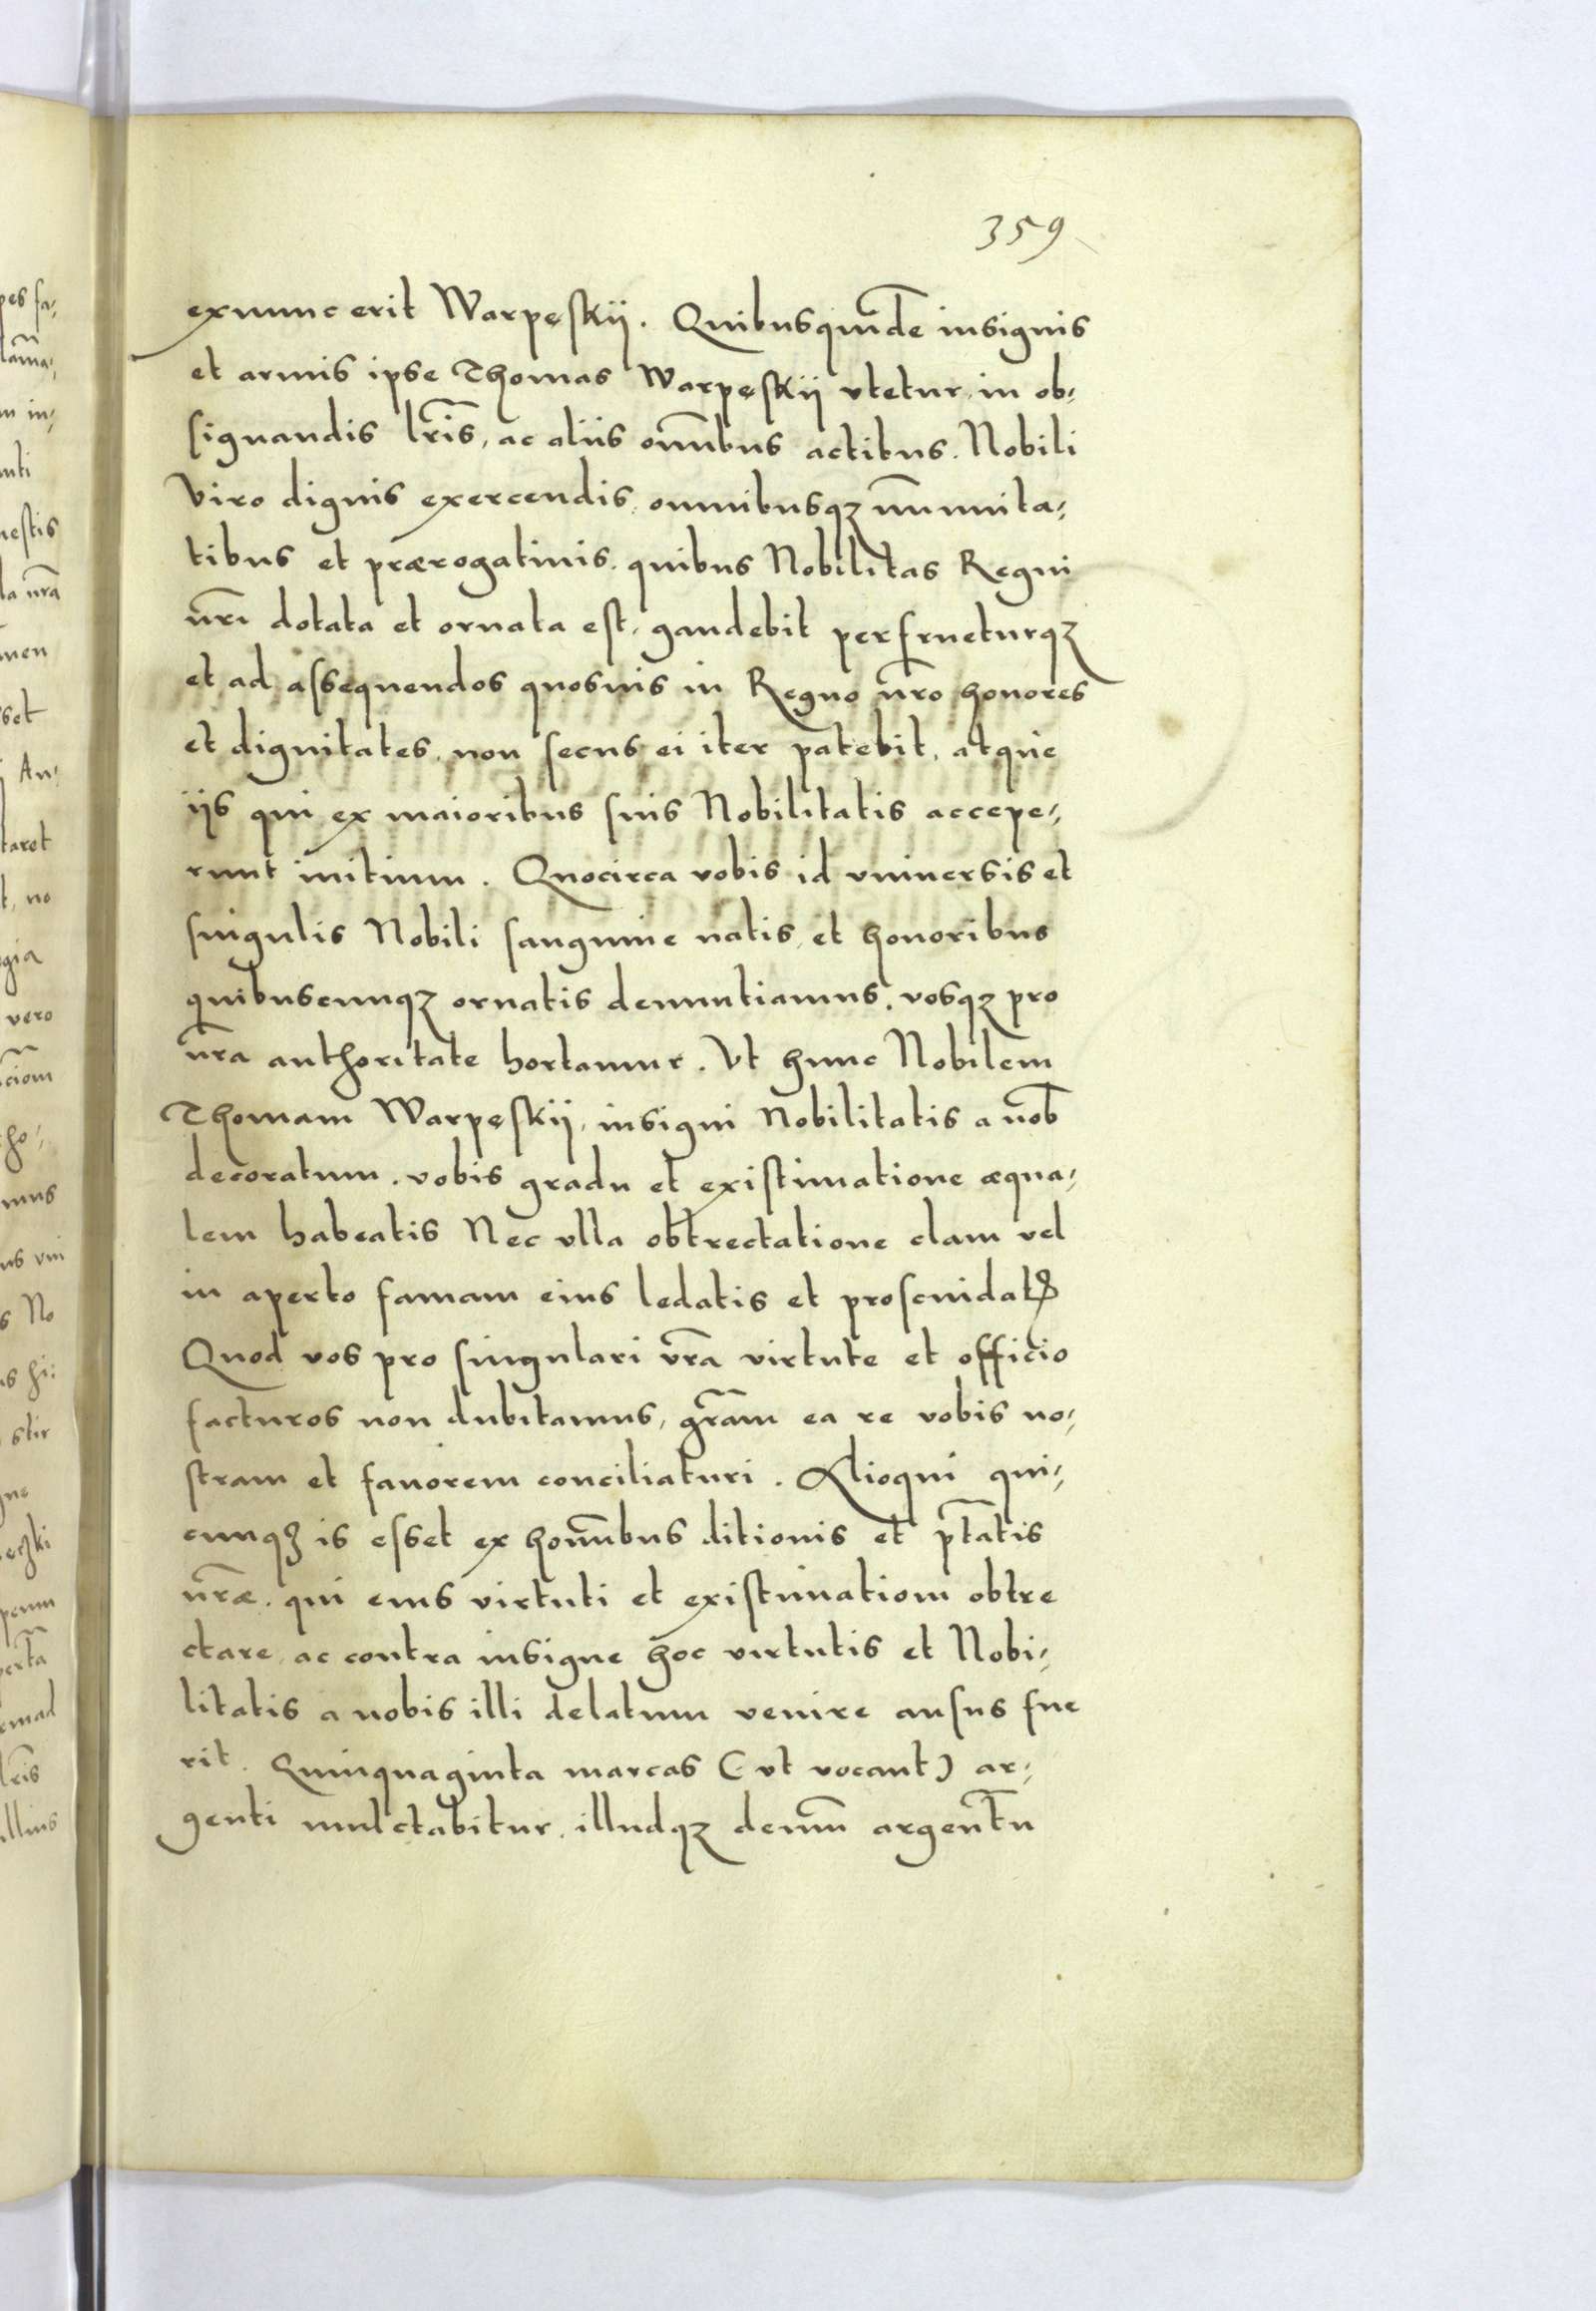 359
exnunc erit Warpęskij. Quibusquid̄e insignis
et armis ipse Thomas Warpęskij vtetur, in ob-
signandis lr̄is, ac aliis om̄ibus actibus. Nobili
Viro dignis exercendis, omnibusqz im̄unita-
tibus et prærogatiuis. quibus Nobilitas Regni
nr̄i dotata et ornata est, gaudebit perfrueturqz
et ad assequendos quosuis in Regno nr̄o honores
et dignitates, non secus ei iter patebit, atque
ijs qui ex maioribus suis Nobilitatis accepe-
runt initium. Quocirca vobis id vniuersis et
singulis Nobili sanguine natis, et honoribus
quibuscunqz ornatis denuntiamus, vosqz pro
nr̄a authoritate hortamur. Vt hunc Nobilem
Thomam Warpęskij, insigni Nobilitatis a nob̄
decoratum. vobis gradu et existimatione æqua-
lem habeatis Nec vlla obtrectatione clam vel
in aperto famam eius ledatis et proscindatꝭ
Quod vos pro singulari vr̄a virtute et officio
facturos non dubitamus, gr̄am ea re vobis no-
stram et fauorem conciliaturi. Alioqui qui-
cunqz is esset ex hom̄ibus ditionis et pt̄atis
nr̄æ. qui eius virtuti et existimationi obtre
ctare, ac contra insigne hoc virtutis et Nobi-
litatis a nobis illi delatum venire ausus fue
rit. Quinquaginta marcas (vt vocant) ar-
genti mulctabitur, illudqz demū argent̄u